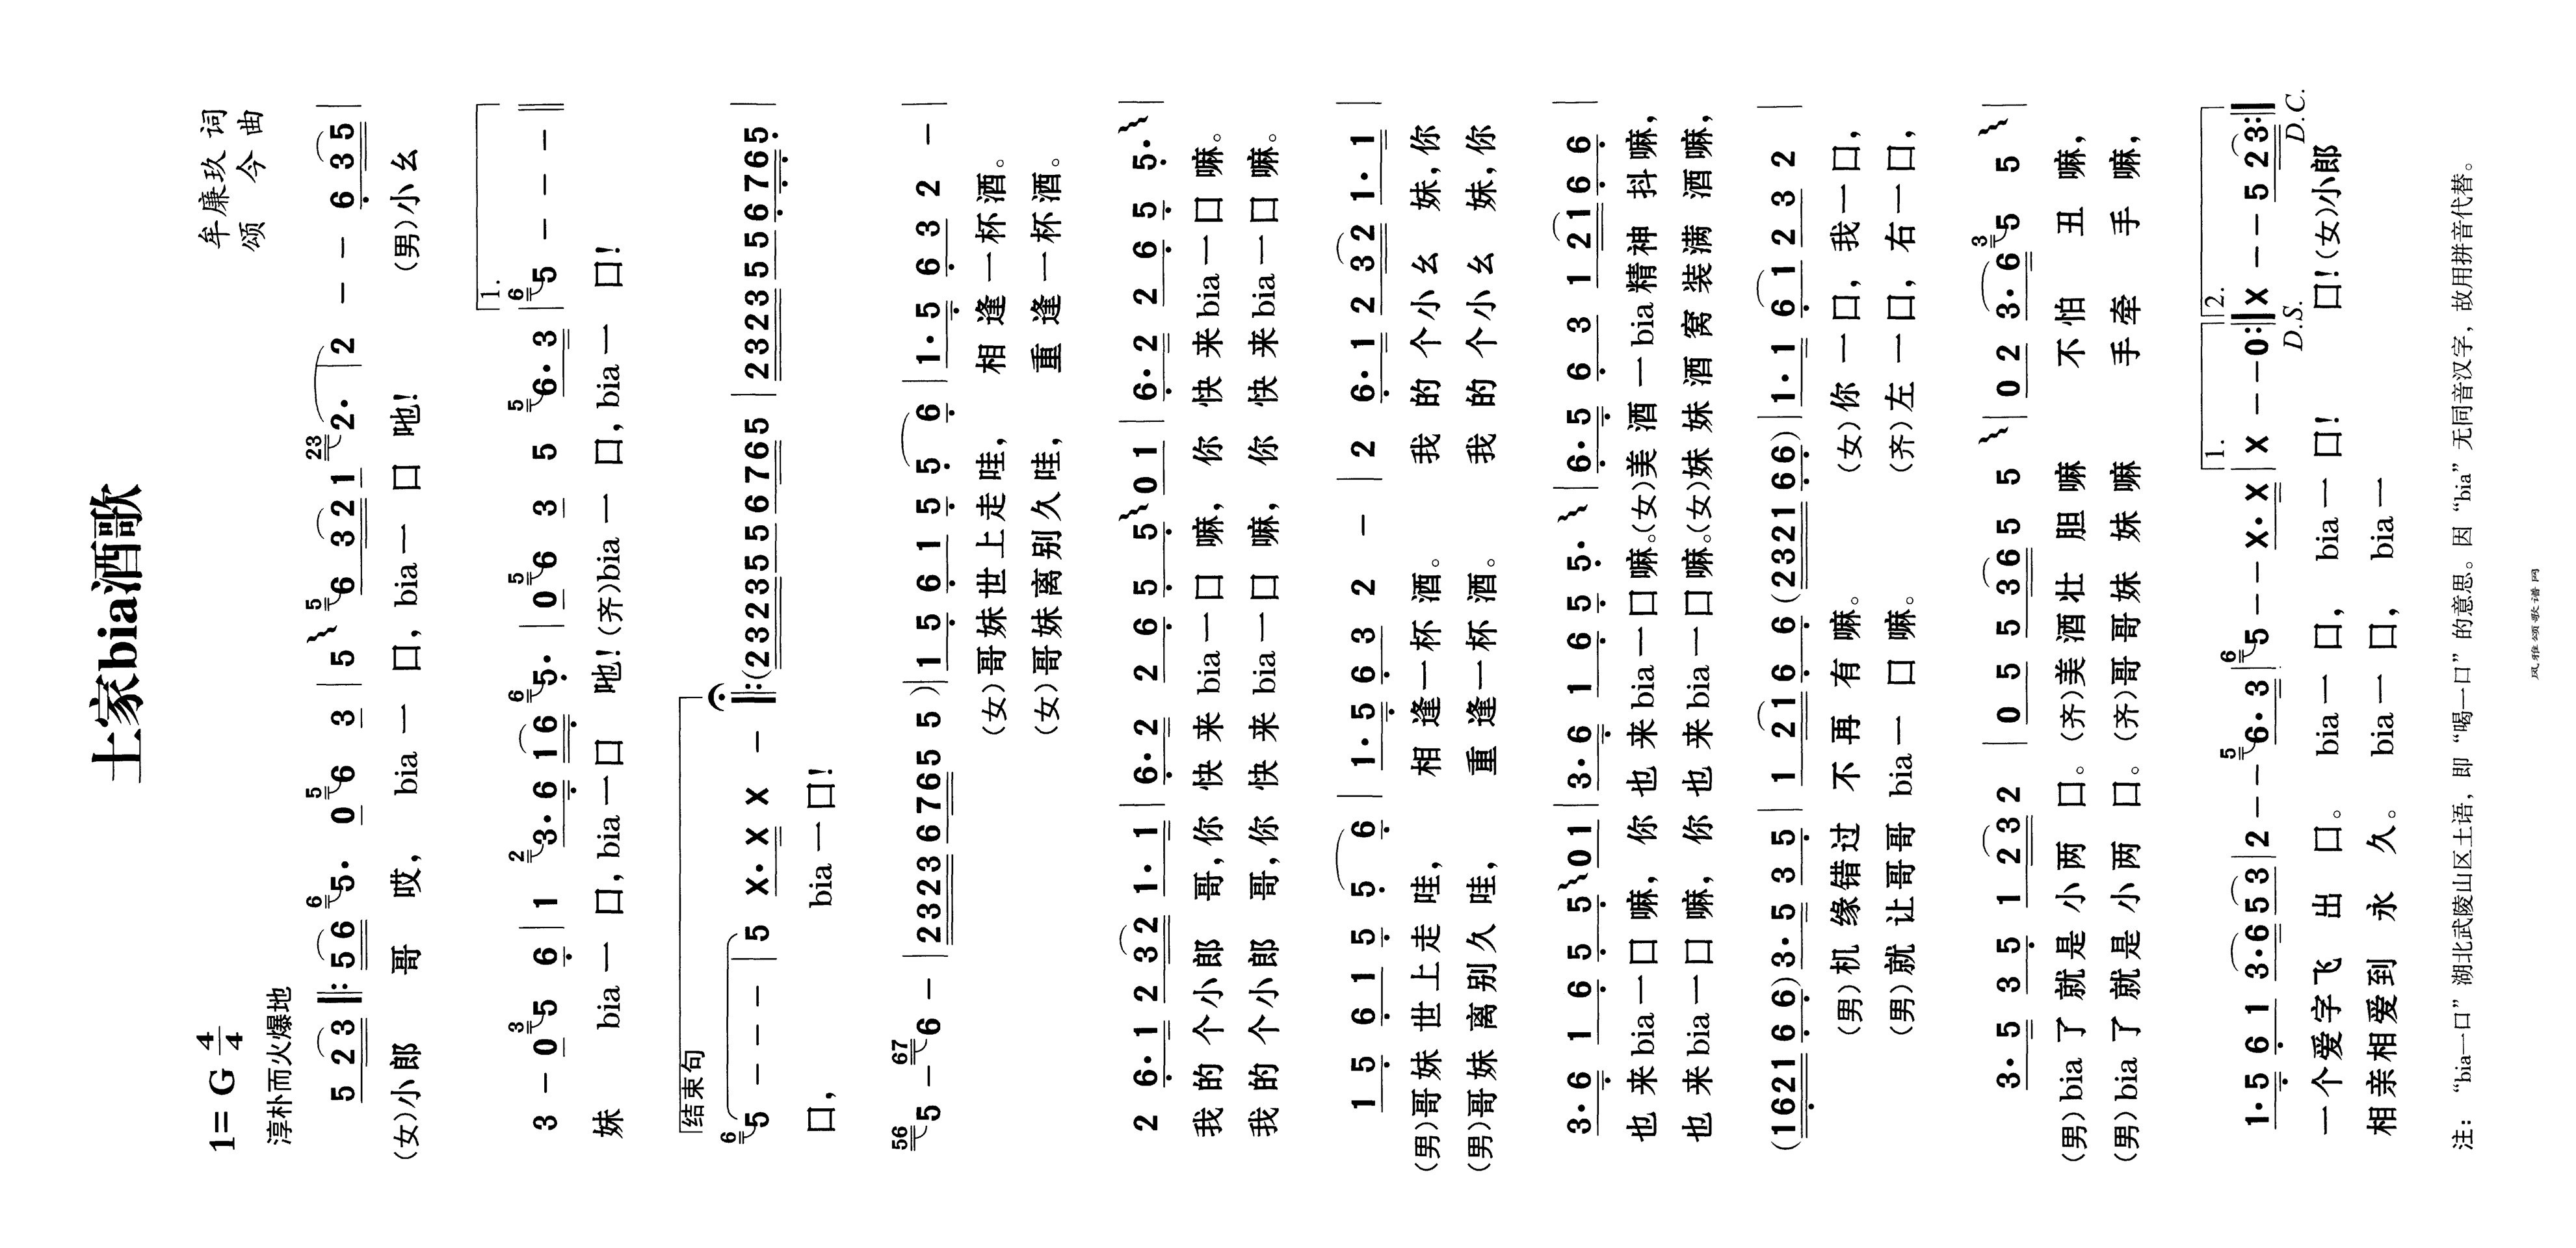 土家bia酒歌
1=G 4/4
牟廉玖 词
颂 今 曲
淳朴而火爆地
5 2 3 ‖: 5 6 6 5· 0 5 6 3 | 5 5 6 3 2 1 23 2· | 2 - - 6 3 5 |
(女)小郎 哥 哎, bia 一 口, bia 一 口 吔! (男)小幺
3 - 0 3 5 6 | 1 2 3· 6 1 6 6 5· | 0 5 6 3 5 5 6· 3 | 1. 6 5 - - - ‖
妹 bia 一 口, bia 一口 吔! (齐)bia 一 口, bia 一 口!
结束句
6 5 - - - | 5 X· X X X - ‖: (2 3 2 3 5 5 6 7 6 5 | 2 3 2 3 5 5 6 7 6 5 |
口, bia 一口!
56 5 - 67 6 - | 2 3 2 3 6 7 6 5 5 ) | 1 5 6 1 5 5 6 | 1· 5 6 3 2 - |
(女)哥妹世上走哇, 相逢一杯酒。
(女)哥妹离别久哇, 重逢一杯酒。
2 6· 1 2 3 2 1· 1 | 6· 2 2 6 5 5 0 1 | 6· 2 2 6 5 5· |
我的个小郎 哥,你 快来bia一口嘛, 你 快来bia一口嘛。
我的个小郎 哥,你 快来bia一口嘛, 你 快来bia一口嘛。
1 5 6 1 5 5 6 | 1· 5 6 3 2 - | 2 6· 1 2 3 2 1· 1 |
(男)哥妹世上走哇, 相逢一杯酒。 我的个小幺 妹,你
(男)哥妹离别久哇, 重逢一杯酒。 我的个小幺 妹,你
3· 6 1 6 5 5 0 1 | 3· 6 1 6 5 5· | 6· 5 6 3 1 2 1 6 6 |
也来bia一口嘛, 你 也来bia一口嘛。(女)美酒一bia精神抖嘛,
也来bia一口嘛, 你 也来bia一口嘛。(女)妹妹酒窝装满酒嘛,
(1 6 2 1 6 6) 3· 5 3 5 | 1 2 1 6 6 (2 3 2 1 6 6) | 1· 1 6 1 2 3 2 |
(男)机缘错过 不再有嘛。 (女)你一口, 我一口,
(男)就让哥哥 bia一口嘛。 (齐)左一口, 右一口,
3· 5 3 5 1 2 3 2 | 0 5 5 3 6 5 5 | 0 2 3· 6 3 5 5 |
(男)bia了就是小两口。 (齐)美酒壮胆嘛 不怕丑嘛,
(男)bia了就是小两口。 (齐)哥哥妹妹嘛 手牵手嘛,
1· 5 6 1 3· 6 5 3 | 2 - - 5 6· 3 | 6 5 - - X· X | 1. X - - 0 :‖ 2. X - - 5 2 3 :‖
D.S. D.C.
一个爱字飞出口。 bia一口, bia一口! 口!(女)小郎
相亲相爱到永久。 bia一口, bia一
注: “bia一口”湖北武陵山区土语, 即“喝一口”的意思。因“bia”无同音汉字, 故用拼音代替。
风雅颂歌谱网